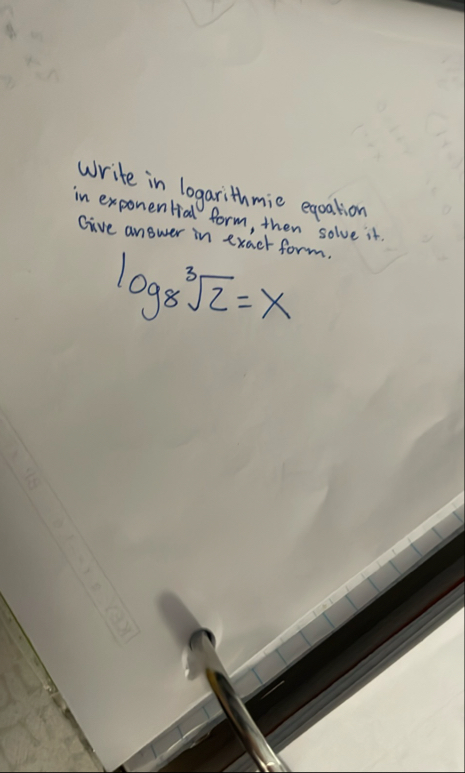 Write in logarithmic equation
in exponential form, then solve it.
Give answer in exact form.
log₈ ³√2 = X